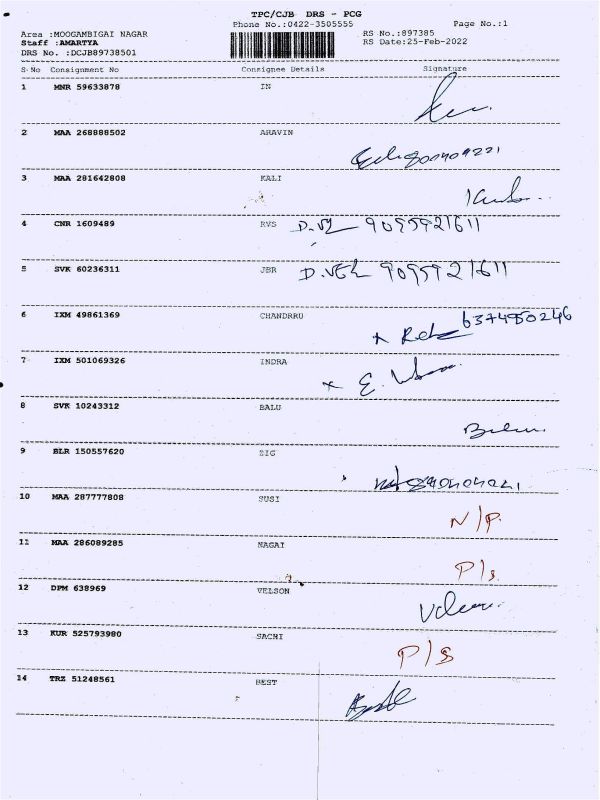 TPC/CJB DRS - PCG
Phone No.:0422-3505555 Page No.:1
Area :MOOGAMBIGAI NAGAR RS No.:897385
Staff :AMARTYA RS Date:25-Feb-2022
DRS No. :DCJB89738501
S-No Consignment No Consignee Details Signature
1 MNR 59633878 IN
2 MAA 268888502 ARAVIN
3 MAA 281642808 KALI
4 CNR 1609489 RVS 9095921611
5 SVK 60236311 JBR D.VEL 9095921611
6 IXM 49861369 CHANDRRU 6374950246
7 IXM 501069326 INDRA
8 SVK 10243312 BALU
9 BLR 150557620 SIG
10 MAA 287777808 SUSI N/P.
11 MAA 286089285 NAGAI P/s.
12 DPM 638969 VELSON
13 KUR 525793980 SACHI P/s
14 TRZ 51248561 BEST